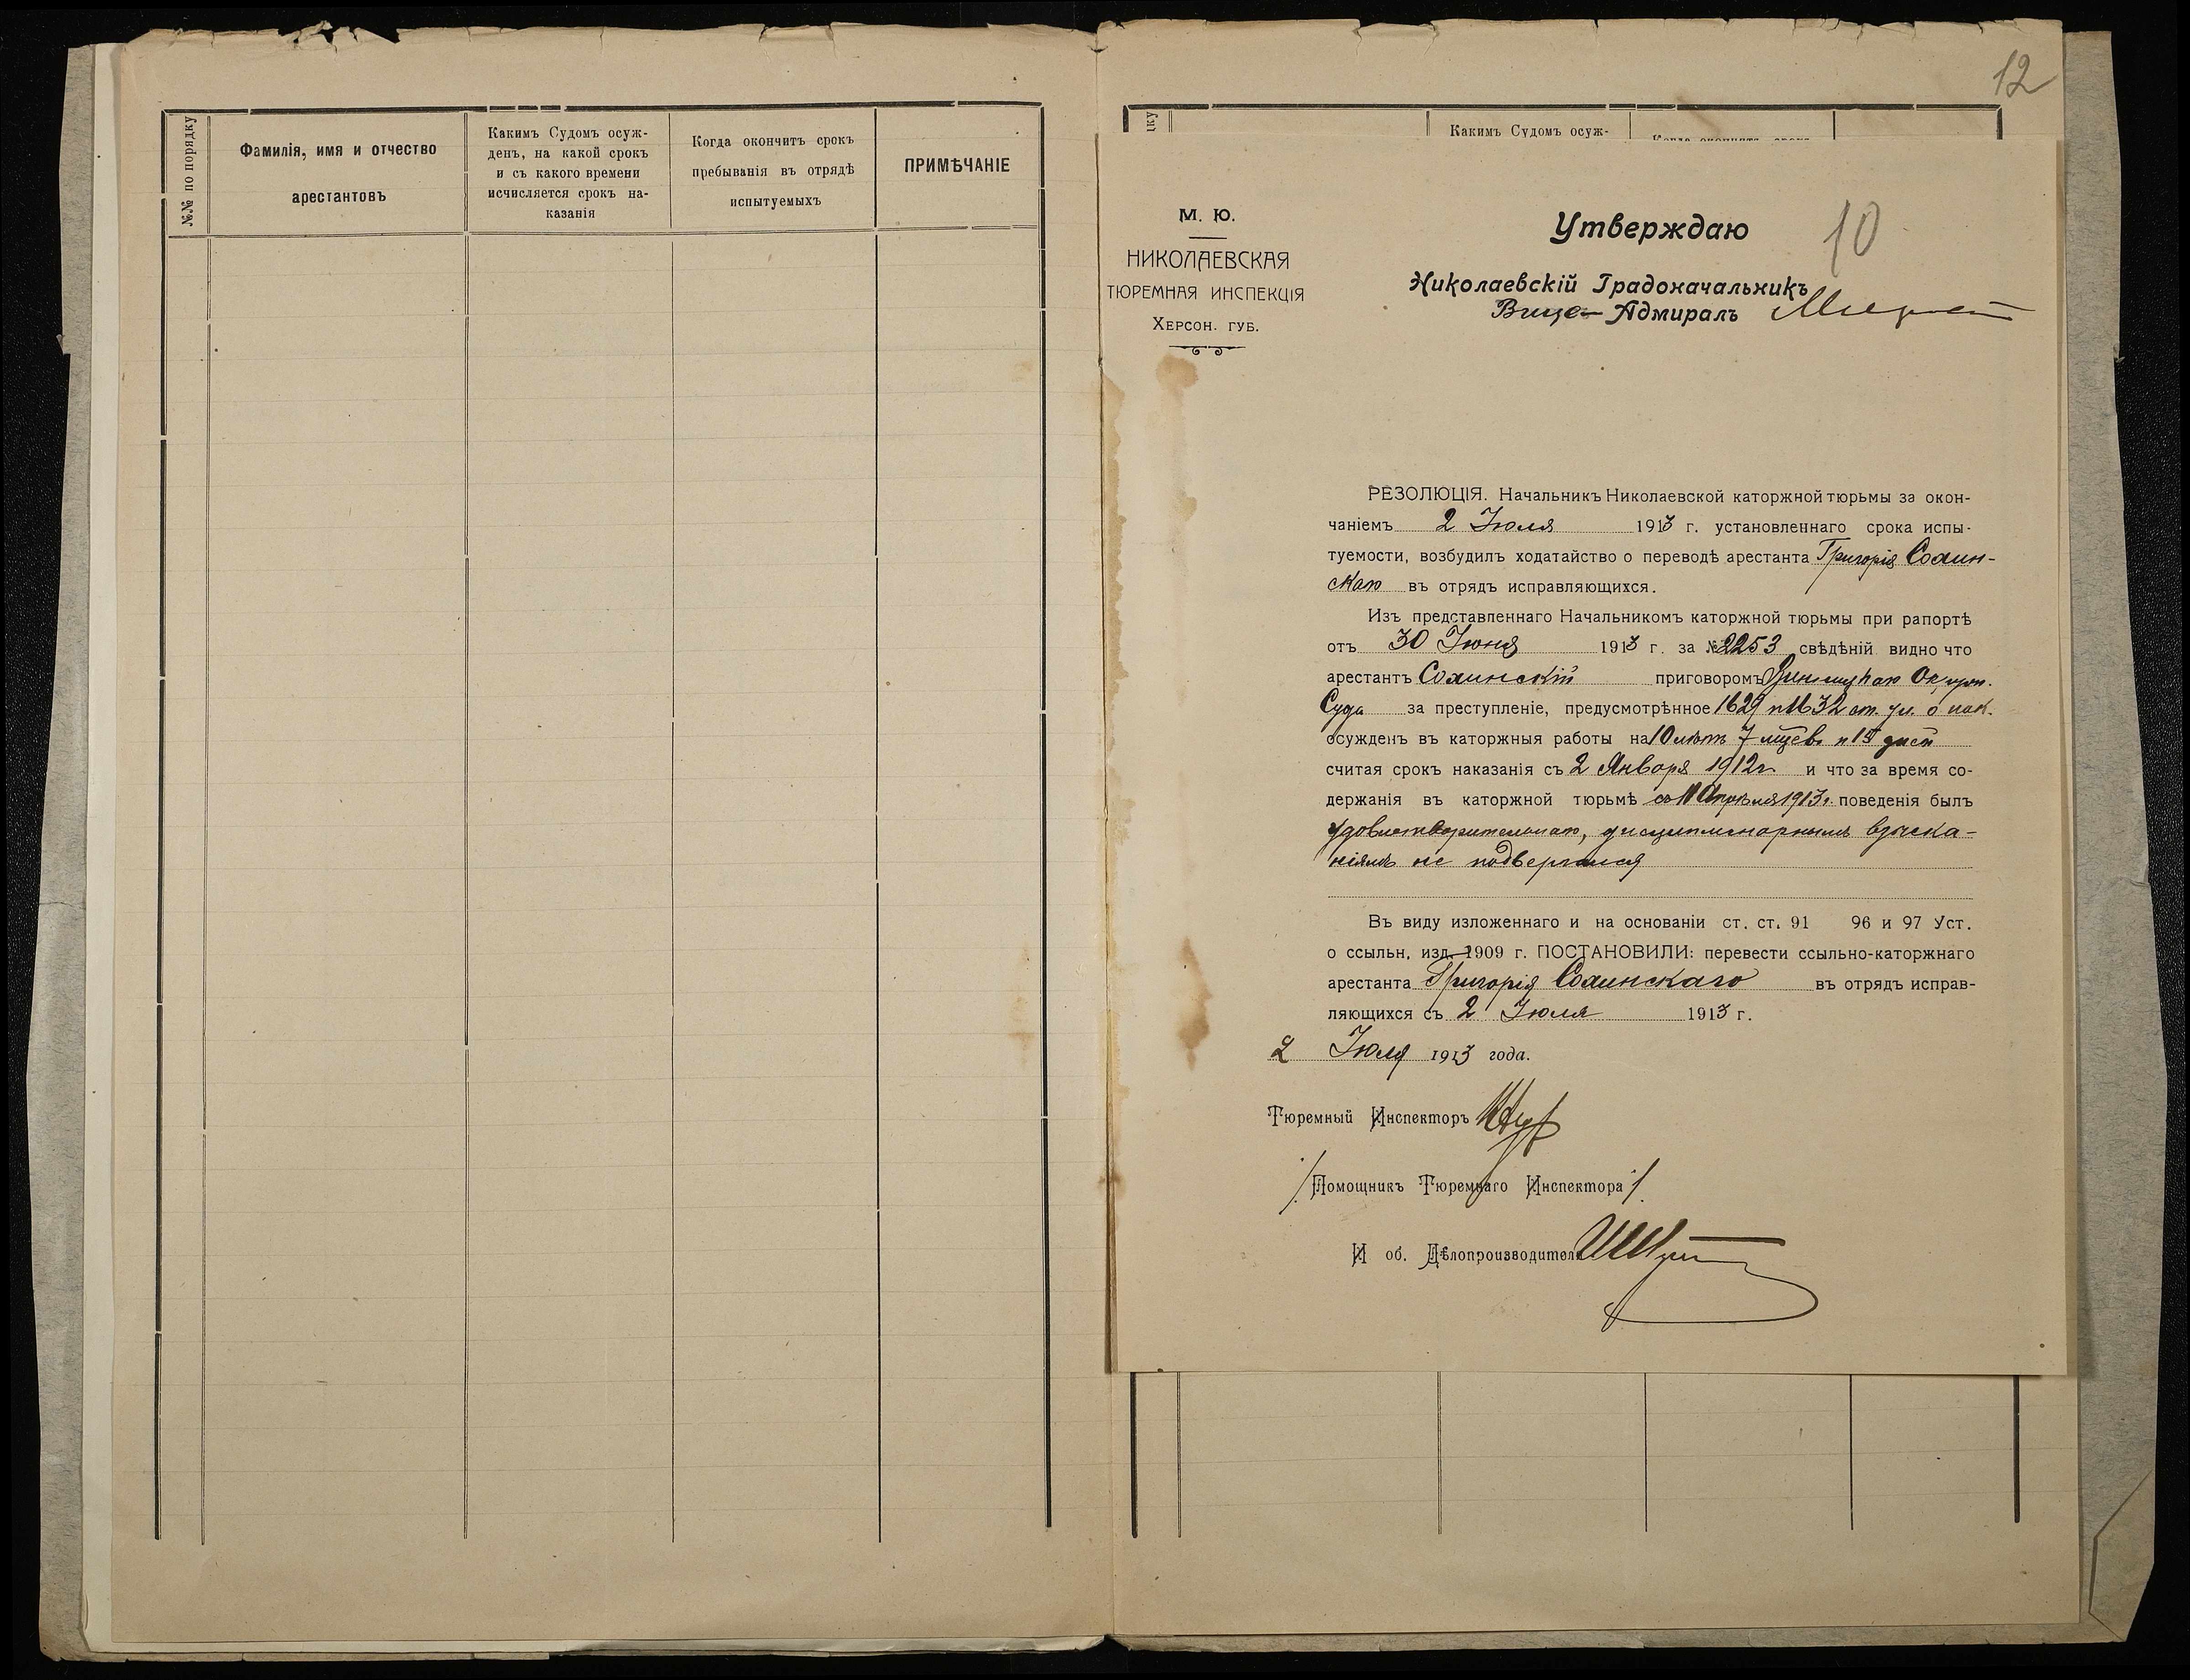 №№ по порядку
Фамилія, имя и отчество
арестантовъ
Какимъ Судомъ осуж-
денъ, на какой срокъ
и съ какого времени
исчисляется срокъ на-
казанія
Когда окончитъ срокъ
пребыванія въ отрядѣ
испытуемыхъ
ПРИМѢЧАНІЕ
12
Какимъ Судомъ осуж-
М. Ю.
НИКОЛАЕВСКАЯ
ТЮРЕМНАЯ ИНСПЕКЦІЯ
ХЕРСОН. ГУБ.
Утверждаю
10
Николаевскій Градоначальникъ
Вице-Адмиралъ
РЕЗОЛЮЦІЯ. Начальникъ Николаевской каторжной тюрьмы за окон-
чаніемъ 2 Іюля 1913 г. установленнаго срока испы-
туемости, возбудилъ ходатайство о переводѣ арестанта Григорія Солин-
скаго въ отрядъ исправляющихся.
Изъ представленнаго Начальникомъ каторжной тюрьмы при рапортѣ
отъ 30 Іюня 1913 г. за № 2253 свѣдѣній видно что
арестантъ Солинскій приговоромъ Винницкаго Окружн.
Суда за преступленіе, предусмотрѣнное 1629 и 1632 ст. ул. о нак.
осужденъ въ каторжныя работы на 10 лѣтъ 7 мѣсев. и 15 дней
считая срокъ наказанія съ 2 Января 1912 г. и что за время со-
держанія въ каторжной тюрьмѣ съ 11 Апрѣля 1913 г. поведенія былъ
удовлетворительнаго, дисциплинарнымъ взыска-
ніямъ не подвергался
Въ виду изложеннаго и на основаніи ст. ст. 91 96 и 97 Уст.
о ссыльн, изд. 1909 г. ПОСТАНОВИЛИ: перевести ссыльно-каторжнаго
арестанта Григорія Солинскаго въ отрядъ исправ-
ляющихся съ 2 Іюля 1913 г.
2 Іюля 1913 года.
Тюремный Инспекторъ
/Помощникъ Тюремнаго Инспектора/
И об. Дѣлопроизводителя